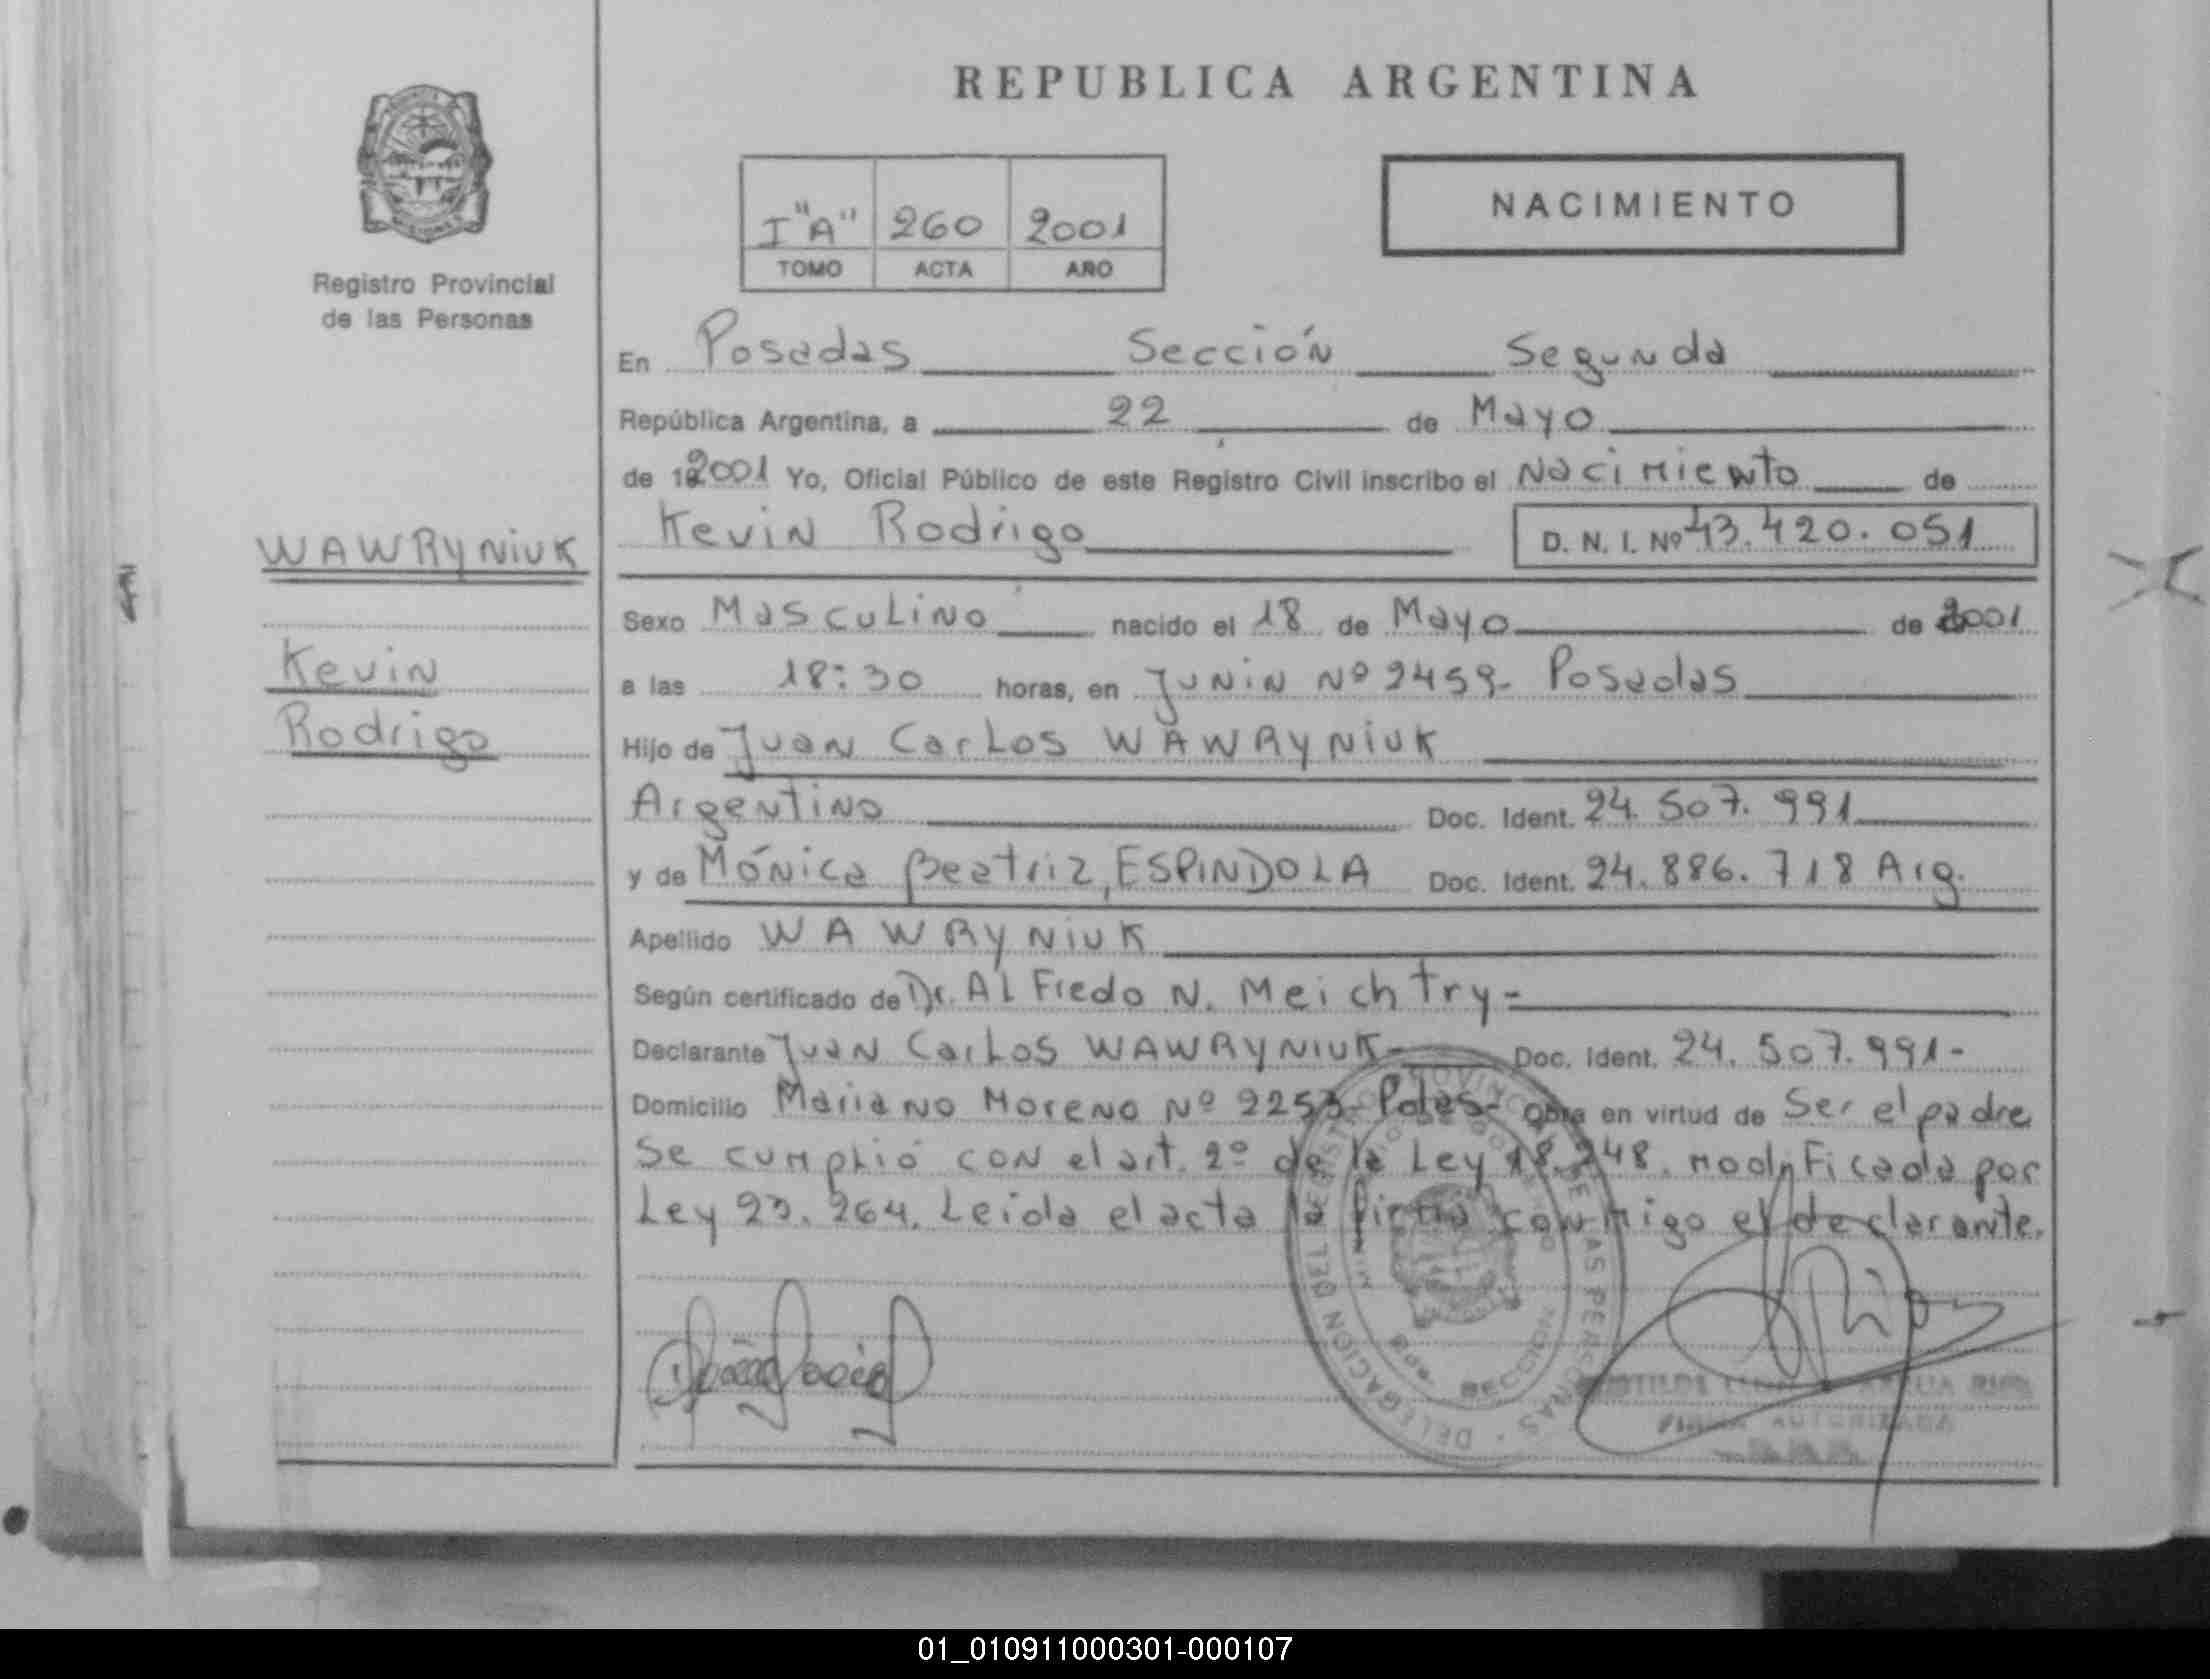 REPUBLICA ARGENTINA
NACIMIENTO
I "A" 260 2001
TOMO ACTA AÑO
Registro Provincial
de las Personas
En Posadas Sección Segunda
República Argentina, a 22 de Mayo
de 2001 Yo, Oficial Público de este Registro Civil inscribo el Nacimiento de
Kevin Rodrigo D. N. I. Nº 43.420.051
WAWRYNIUK
Kevin
Rodrigo
Sexo Masculino nacido el 18 de Mayo de 2001
a las 18:30 horas, en Junin Nº 2459- Posadas
Hijo de Juan Carlos WAWRYNIUK
Argentino Doc. Ident. 24.507.991
y de Mónica Beatriz, ESPINDOLA Doc. Ident. 24.886.718 Arg.
Apellido WAWRYNIUK
Según certificado de Dr. Alfredo N. Meichtry-
Declarante Juan Carlos WAWRYNIUK- Doc. Ident. 24.507.991-
Domicilio Mariano Moreno Nº 2253- Pdas- Obra en virtud de Ser el padre
Se cumplió con el art. 2º de la Ley 18.248. modificada por
Ley 23.264. Leida el acta la firma conmigo el declarante.
DELEGACION DEL REGISTRO PROVINCIAL DE LAS PERSONAS
FIRMA AUTORIZADA
01_010911000301-000107